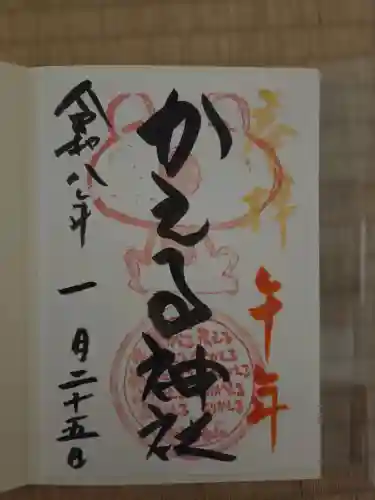 奉拝
午年
かえる神社
令和八年一月二十五日